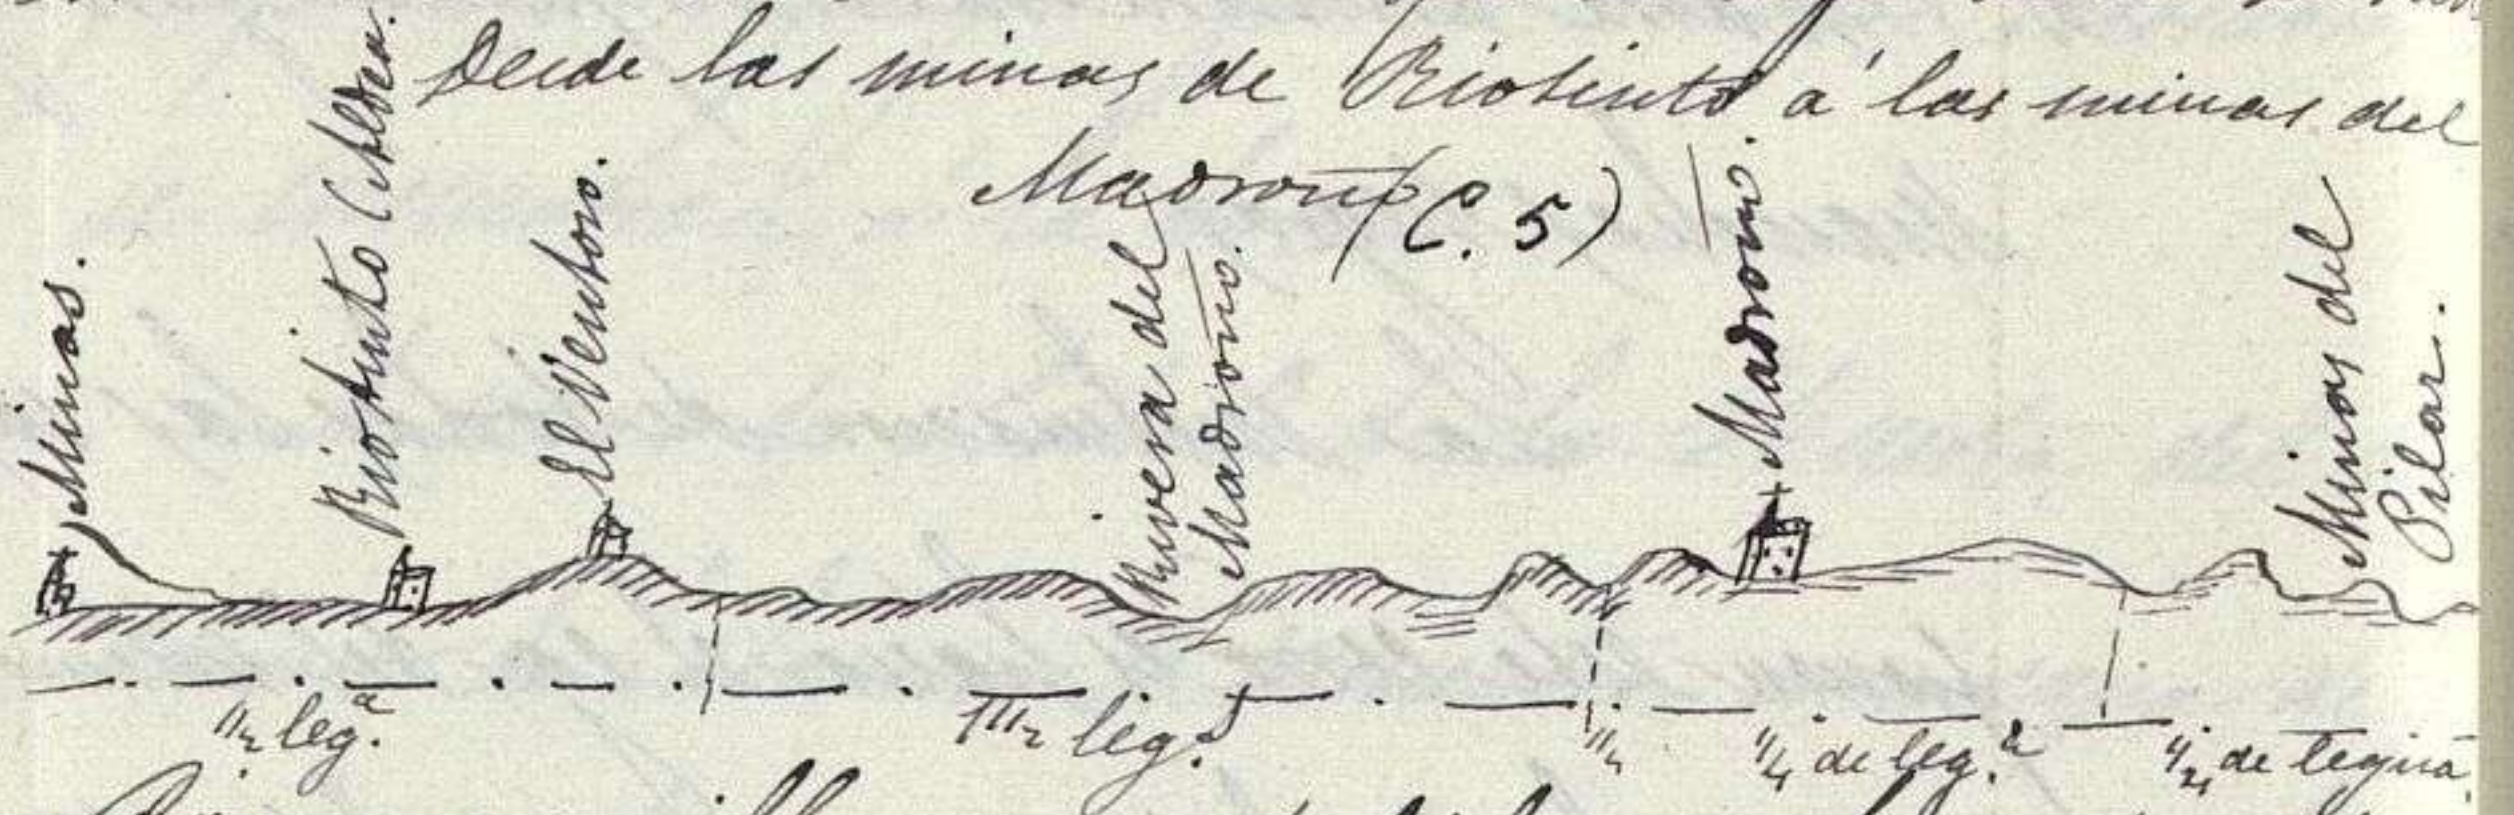 Desde las minas de Riotinto á las minas del
Madroño (C. 5)
Minas.
Riotinto (Aldea.
El Ventoso.
Rivera del
Madroño.
Madroño.
Minas del
Pilar.
1/2 leg.ª
leg.s
1/4 de leg.ª
de legua